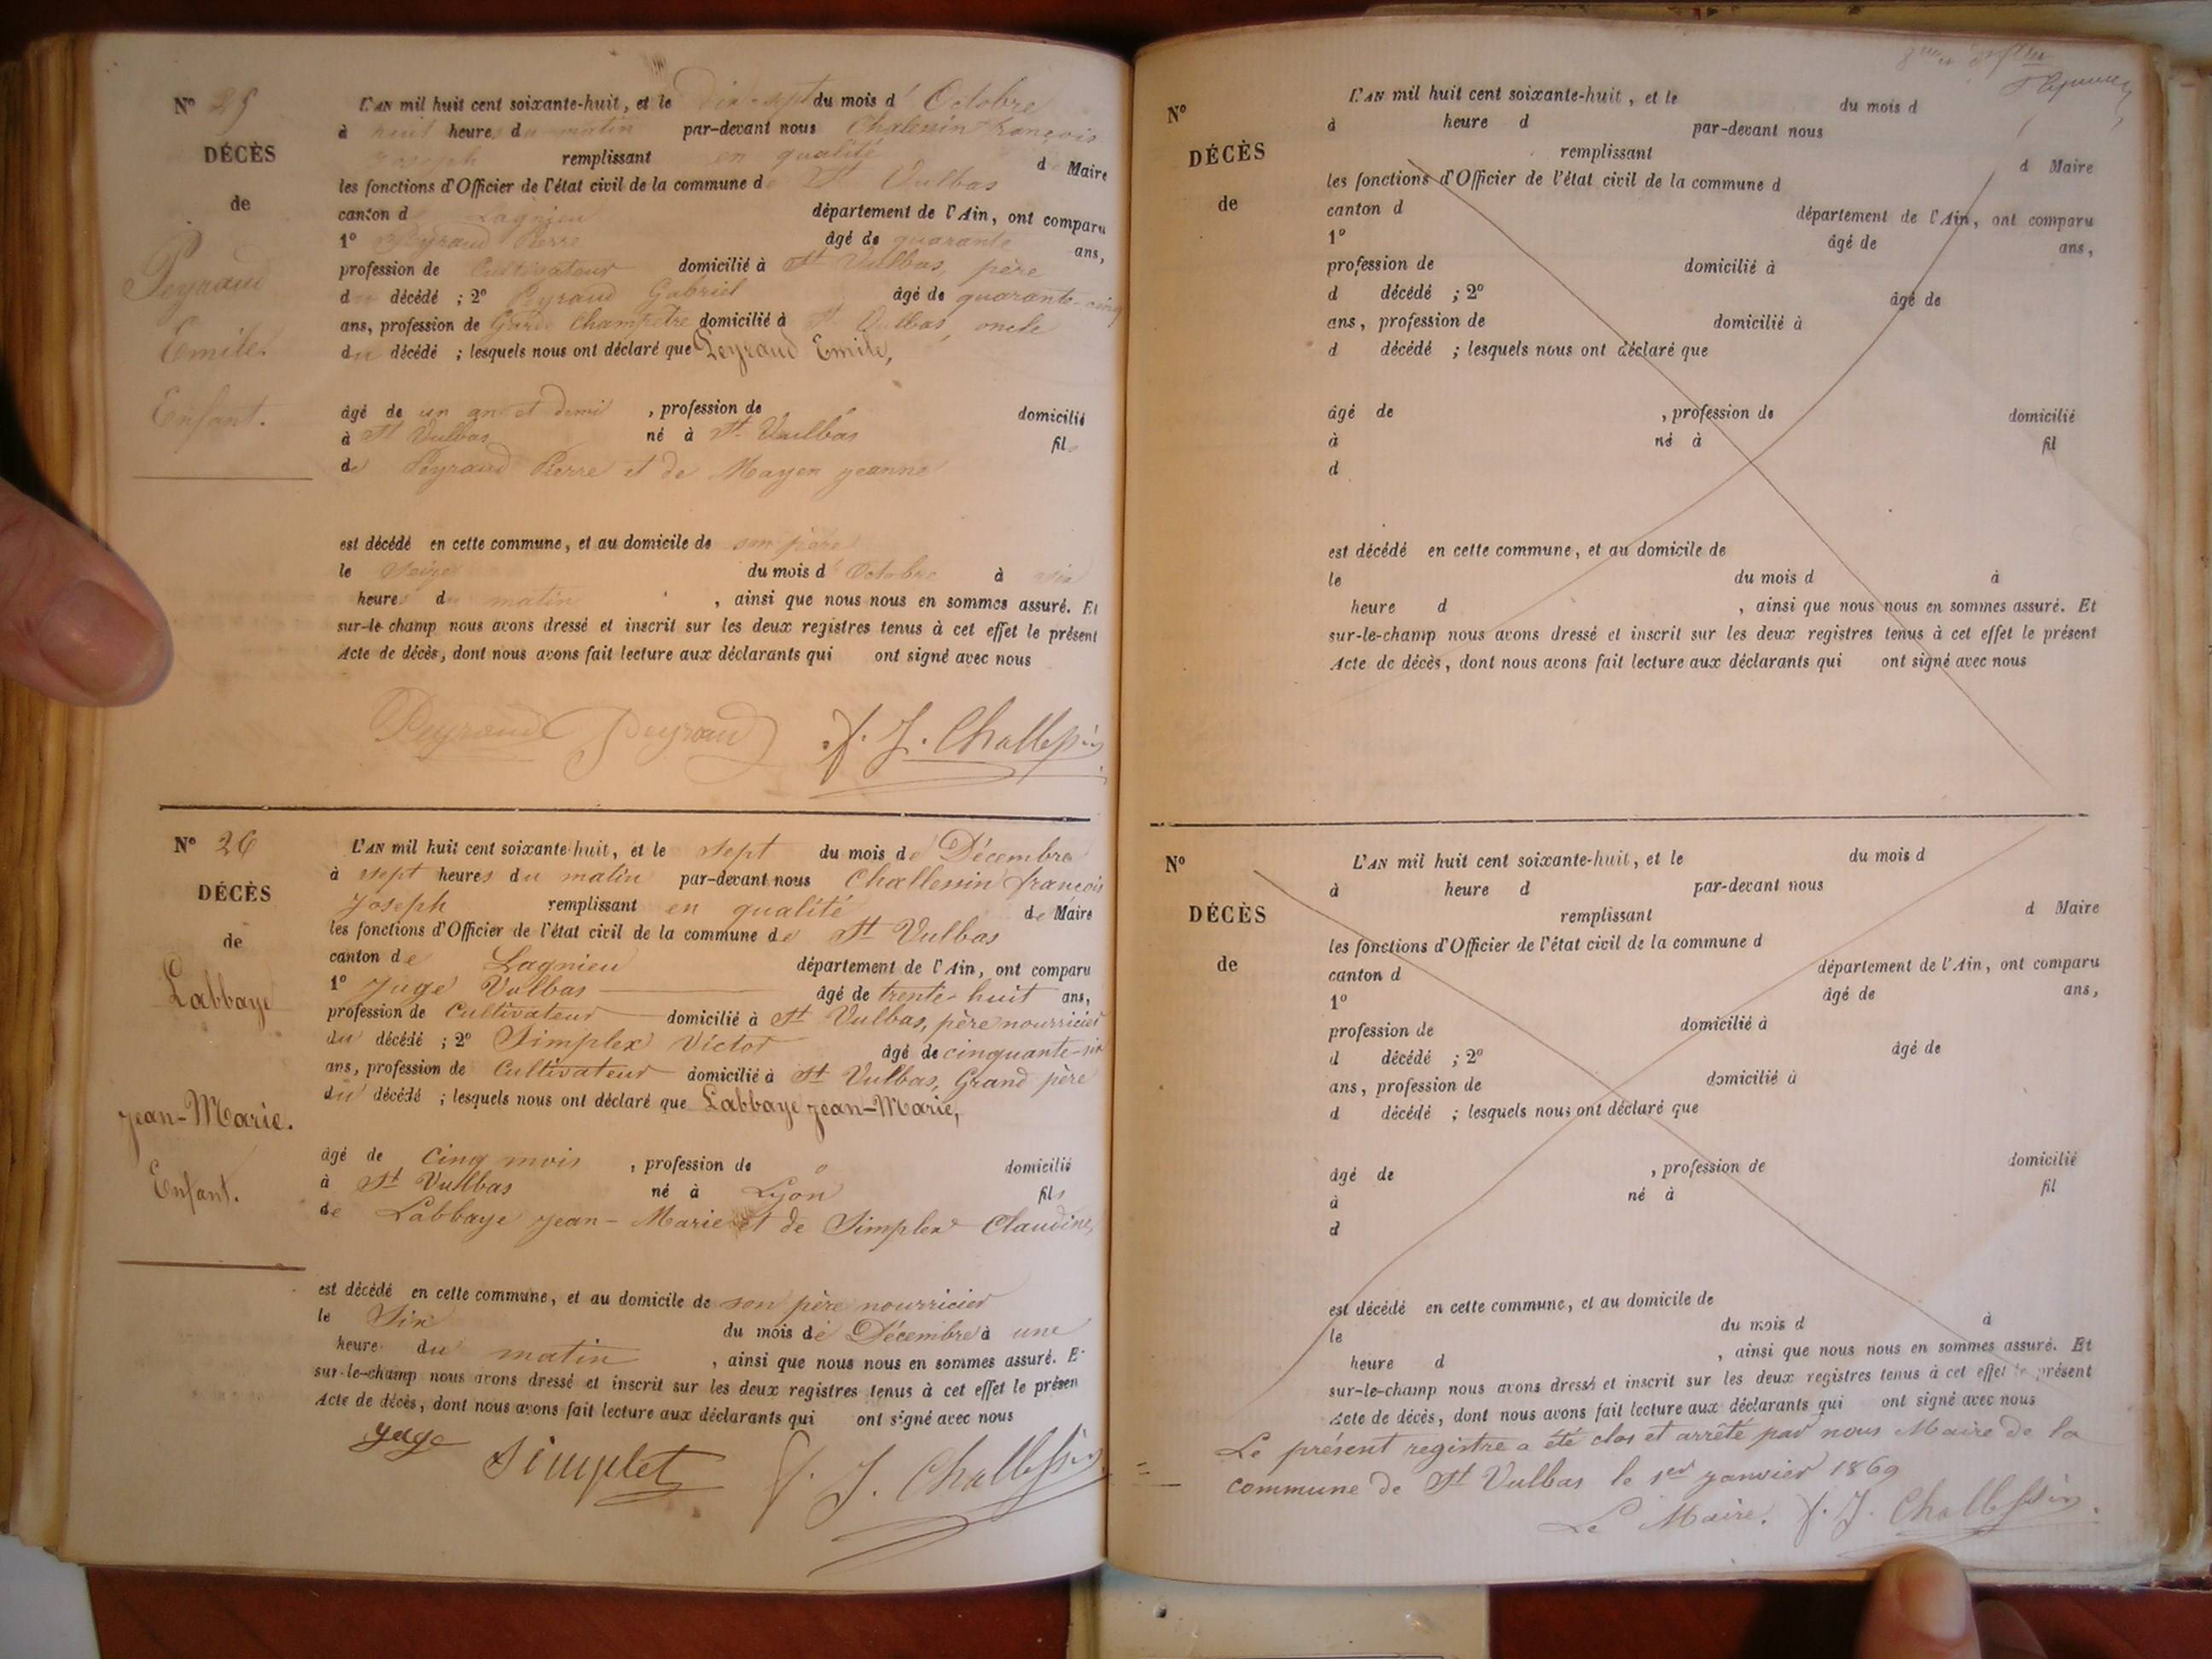 Nº 25
DÉCÈS
de
Peyraud
Emile.
Enfant.
L'AN mil huit cent soixante-huit, et le dix-sept du mois d'Octobre
à heure du matin par-devant nous Chalessin françois
Joseph remplissant en qualité de Maire
les fonctions d'Officier de l'état civil de la commune de St Vulbas
canton d Lagnieu département de l'Ain, ont comparu
1º Peyraud Pierre âgé de quarante ans,
profession de Cultivateur domicilié à St Vulbas, père
du décédé ; 2º Peyraud Gabriel âgé de quarante-cinq
ans, profession de Garde Champetre domicilié à St Vulbas, oncle
du décédé ; lesquels nous ont déclaré que Peyraud Emile,
âgé de un an et demi , profession de domicilié
à St Vulbas né à St Vulbas fils
de Peyraud Pierre et de Mayen jeanne
est décédé en cette commune, et au domicile de son père
le seize du mois d'Octobre à six
heures du matin , ainsi que nous nous en sommes assuré. Et
sur-le-champ nous avons dressé et inscrit sur les deux registres tenus à cet effet le présent
Acte de décès, dont nous avons fait lecture aux déclarants qui ont signé avec nous
Peyraud Peyraud f. J. Challessin
Nº 26
DÉCÈS
de
Labbaye
jean-Marie.
Enfant.
L'AN mil huit cent soixante-huit, et le sept du mois de Décembre
à sept heures du matin par-devant nous Challessin françois
Joseph remplissant en qualité de Maire
les fonctions d'Officier de l'état civil de la commune de St Vulbas
canton de Lagnieu département de l'Ain, ont comparu
1º Juge Vulbas âgé de trente-huit ans,
profession de Cultivateur domicilié à St Vulbas, père nourricier
du décédé ; 2º Simplex Victor âgé de cinquante-six
ans, profession de Cultivateur domicilié à St Vulbas, Grand père
du décédé ; lesquels nous ont déclaré que Labbaye jean-Marie,
âgé de Cinq mois , profession de domicilié
à St Vulbas né à Lyon fils
de Labbaye jean-Marie et de Simplex Claudine,
est décédé en cette commune, et au domicile de son père nourricier
le Six du mois de Décembre à une
heure du matin , ainsi que nous nous en sommes assuré. E
sur-le-champ nous avons dressé et inscrit sur les deux registres tenus à cet effet le présen
Acte de décès, dont nous avons fait lecture aux déclarants qui ont signé avec nous
Simplet f. J. Challessin
Nº
DÉCÈS
de
L'AN mil huit cent soixante-huit, et le du mois d
à heure d par-devant nous
remplissant d Maire
les fonctions d'Officier de l'état civil de la commune d
canton d département de l'Ain, ont comparu
1º âgé de ans,
profession de domicilié à
d décédé ; 2º âgé de
ans, profession de domicilié à
d décédé ; lesquels nous ont déclaré que
âgé de , profession de domicilié
à né à fil
d
est décédé en cette commune, et au domicile de
le du mois d à
heure d , ainsi que nous nous en sommes assuré. Et
sur-le-champ nous avons dressé et inscrit sur les deux registres tenus à cet effet le présent
Acte de décès, dont nous avons fait lecture aux déclarants qui ont signé avec nous
Nº
DÉCÈS
de
L'AN mil huit cent soixante-huit, et le du mois d
à heure d par-devant nous
remplissant d Maire
les fonctions d'Officier de l'état civil de la commune d
canton d département de l'Ain, ont comparu
1º âgé de ans,
profession de domicilié à
d décédé ; 2º âgé de
ans, profession de domicilié à
d décédé ; lesquels nous ont déclaré que
âgé de , profession de domicilié
à né à fil
d
est décédé en cette commune, et au domicile de
le du mois d à
heure d , ainsi que nous nous en sommes assuré. Et
sur-le-champ nous avons dressé et inscrit sur les deux registres tenus à cet effet le présent
Acte de décès, dont nous avons fait lecture aux déclarants qui ont signé avec nous
Le présent registre a été clos et arrêté par nous Maire de la
commune de St Vulbas le 1er janvier 1869
Le Maire. f. J. Challessin.